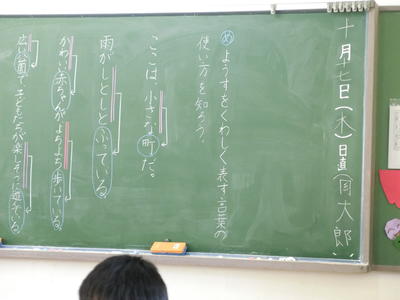 十月十七日(木)日直(
大郎)
め ようすをくわしく表す言葉の
使い方を知ろう。
ここは、小さな町だ。
雨がしとしとふっている。
かわいい赤ちゃんが、よちよち歩いている。
広い園で、子どもたちが楽しそうに遊んでいる。